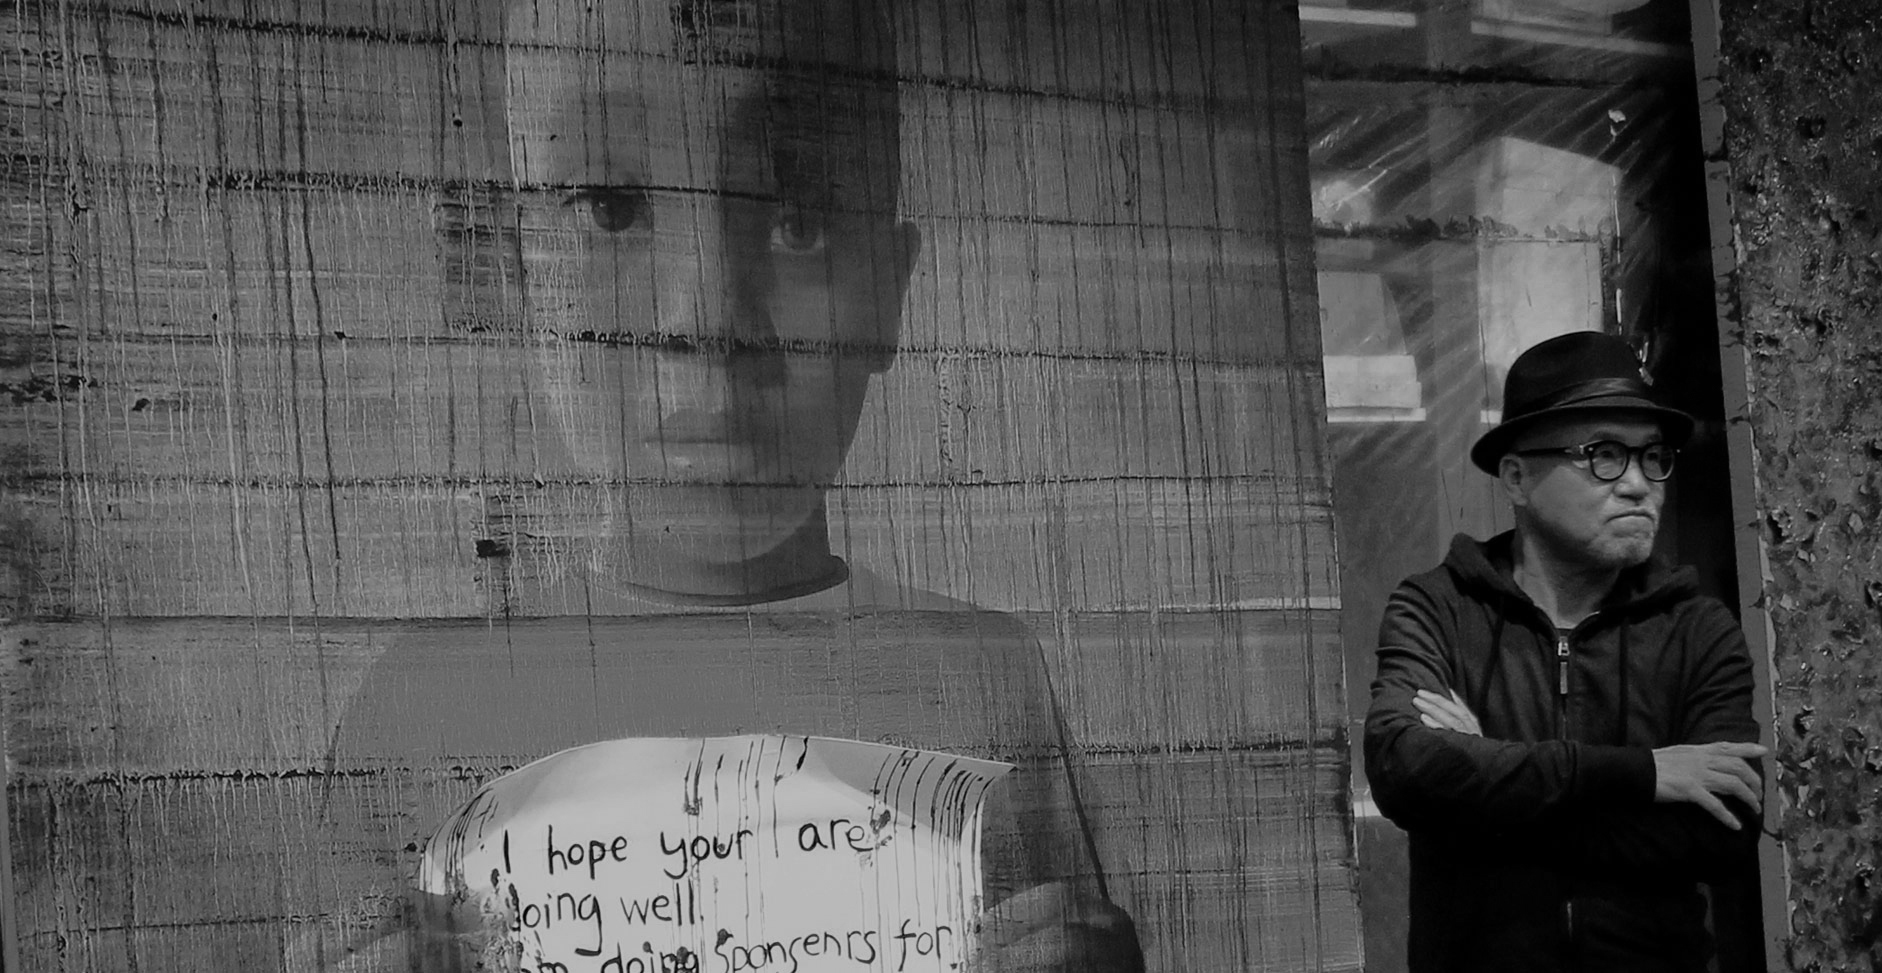 I hope your are
doing well.
doing sponsenrs for